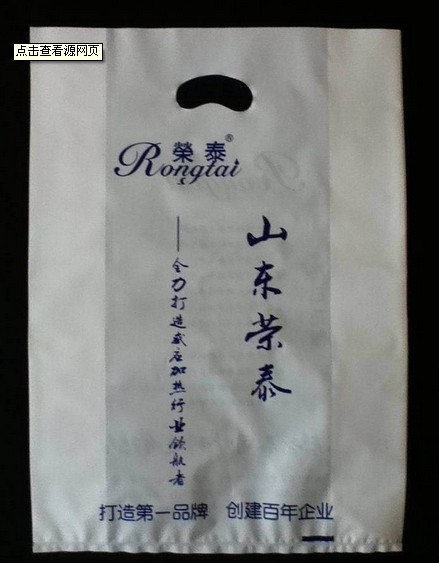 点击查看源网页
榮泰®
Rongtai
山东荣泰
——全力打造感应加热行业领航者
打造第一品牌 创建百年企业